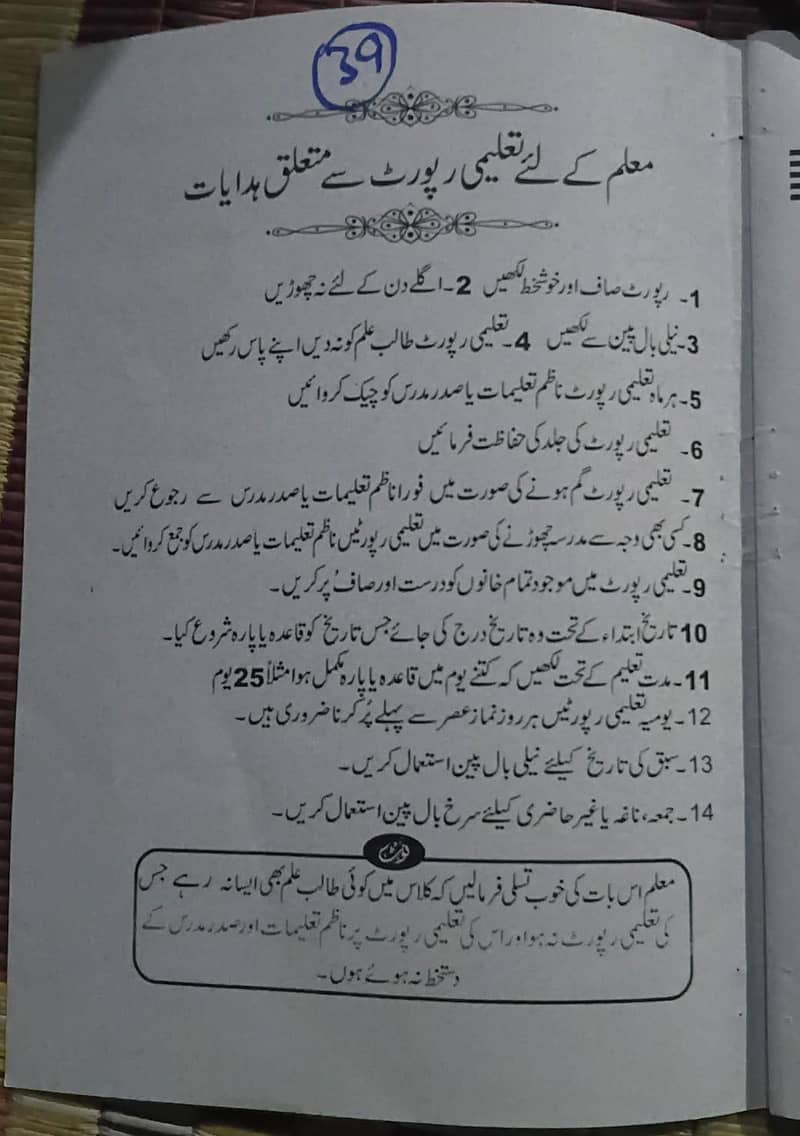 39
معلم کے لئے تعلیمی رپورٹ سے متعلق ہدایات
1۔ رپورٹ صاف اور خوشخط لکھیں 2۔اگلے دن کے لئے نہ چھوڑیں
3۔نیلی بال پین سے لکھیں 4۔تعلیمی رپورٹ طالب علم کو نہ دیں اپنے پاس رکھیں
5۔ہر ماہ تعلیمی رپورٹ ناظم تعلیمات یا صدر مدرس کو چیک کروائیں
6۔ تعلیمی رپورٹ کی جلد کی حفاظت فرمائیں
7۔ تعلیمی رپورٹ گم ہونے کی صورت میں فورا ناظم تعلیمات یا صدر مدرس سے رجوع کریں
8۔کسی بھی وجہ سے مدرسہ چھوڑنے کی صورت میں تعلیمی رپورٹیں ناظم تعلیمات یا صدر مدرس کو جمع کروائیں۔
9۔تعلیمی رپورٹ میں موجود تمام خانوں کو درست اور صاف پُر کریں۔
10 تاریخ ابتداء کے تحت وہ تاریخ درج کی جائے جس تاریخ کو قاعدہ یا پارہ شروع کیا۔
11۔مدت تعلیم کے تحت لکھیں کہ کتنے یوم میں قاعدہ یا پارہ مکمل ہوا مثلاً 25 یوم
12۔یومیہ تعلیمی رپورٹیں ہر روز نماز عصر سے پہلے پُر کرنا ضروری ہیں۔
13۔سبق کی تاریخ کیلئے نیلی بال پین استعمال کریں۔
14۔جمعہ، ناغہ یا غیر حاضری کیلئے سرخ بال پین استعمال کریں۔
نوٹ
معلم اس بات کی خوب تسلی فرمالیں کہ کلاس میں کوئی طالب علم بھی ایسا نہ رہے جس
کی تعلیمی رپورٹ نہ ہو اور اس کی تعلیمی رپورٹ پر ناظم تعلیمات اور صدر مدرس کے
دستخط نہ ہوئے ہوں۔